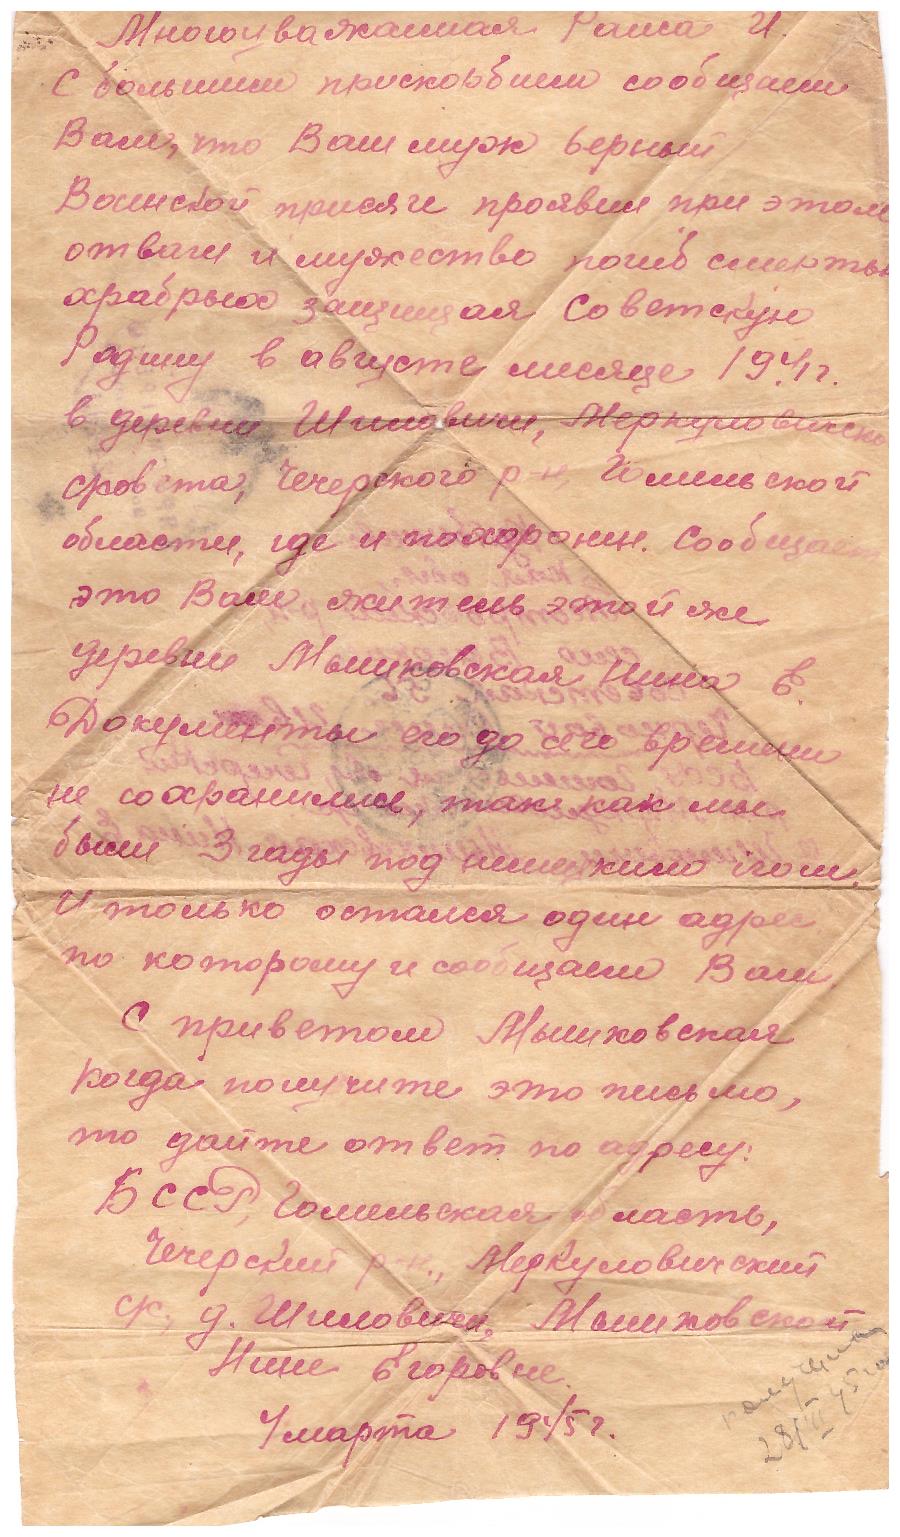 Многоуважаемая Раиса И.
С большим прискорбием сообщаем
Вам, что Ваш муж верный
Воинской присяги проявив при этом
отваги и мужество погиб смертью
храбрых защищая Советскую
Родину в августе месяце 1941г.
в деревни Шиловичи, Меркуловичско
с/совета, Чечерского р-н, Гомельской
области, где и похоронен. Сообщает
это Вам житель этой же
деревни Мышковская Нина Е.
Документы его до сего времени
не сохранились, так как мы
были 3 гады под немецкило игом.
И только остался один адрес
по которому и сообщаем Вам.
С приветом Мышковская
Когда получите это письмо,
то дайте ответ по адресу:
БССР, Гомельская область,
Чечерский р-н., Меркуловичский
с/с, д. Шиловичи, Мышковской
Нине Егоровне.
4 марта 1945г.
получено
28/III 45 год